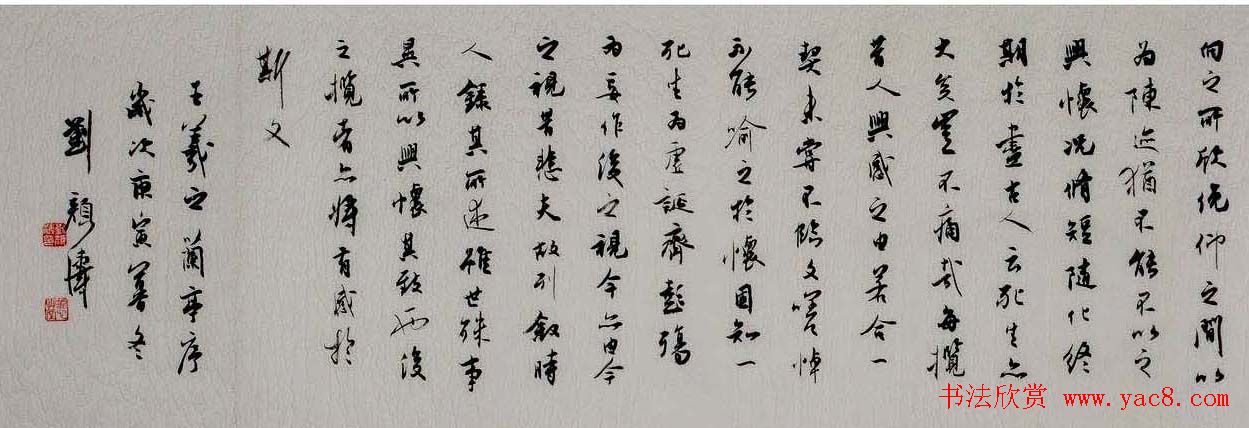 向之所欣俛仰之間以
为陳迹猶不能不以之
興懷况脩短随化終
期於盡古人云死生亦
大矣豈不痛哉每攬
昔人興感之由若合一
契未嘗不臨文嗟悼
不能喻之於懷固知一
死生为虚誕齊彭殤
为妄作後之視今亦由今
之視昔悲夫故列叙時
人録其所述雖世殊事
異所以興懷其致一也後
之攬者亦将有感於
斯文
王羲之蘭亭序
歲次庚寅暮冬
劉顏濤
书法欣赏 www.yac8.com